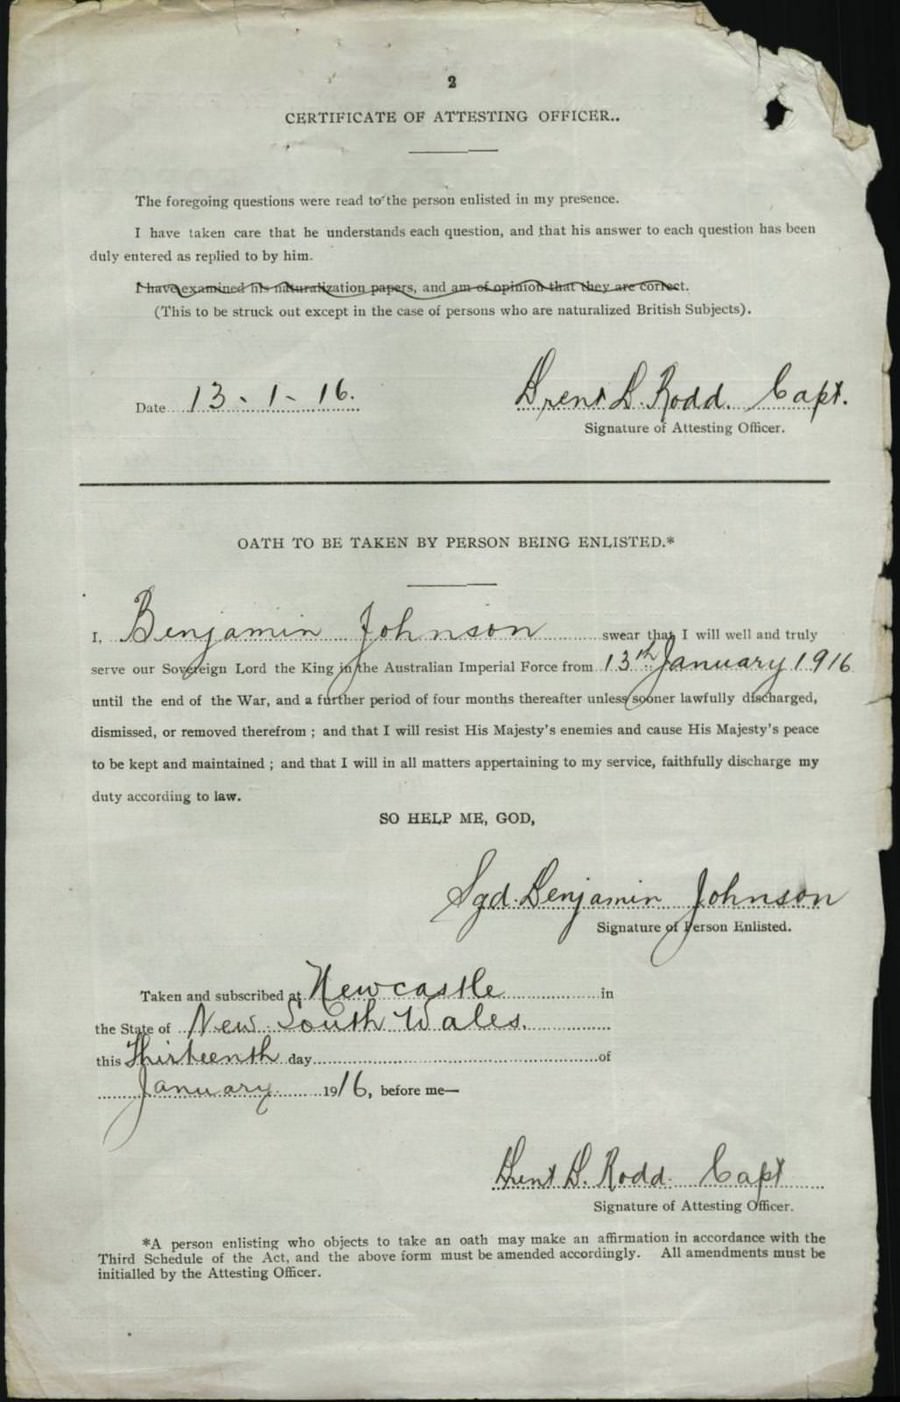 2
CERTIFICATE OF ATTESTING OFFICER..
The foregoing questions were read to the person enlisted in my presence.
I have taken care that he understands each question, and that his answer to each question has been
duly entered as replied to by him.
I have examined his naturalization papers, and am of opinion that they are correct.
(This to be struck out except in the case of persons who are naturalized British Subjects).
Date 13-1-16.
D. Rodd. Capt.
Signature of Attesting Officer.
OATH TO BE TAKEN BY PERSON BEING ENLISTED.*
I, Benjamin Johnson swear that I will well and truly
serve our Sovereign Lord the King in the Australian Imperial Force from 13th January 1916
until the end of the War, and a further period of four months thereafter unless sooner lawfully discharged,
dismissed, or removed therefrom ; and that I will resist His Majesty's enemies and cause His Majesty's peace
to be kept and maintained ; and that I will in all matters appertaining to my service, faithfully discharge my
duty according to law.
SO HELP ME, GOD,
Sgd. Benjamin Johnson
Signature of Person Enlisted.
Taken and subscribed at Newcastle in
the State of New South Wales.
this Thirteenth day of
January 1916, before me—
D. Rodd. Capt
Signature of Attesting Officer.
*A person enlisting who objects to take an oath may make an affirmation in accordance with the
Third Schedule of the Act, and the above form must be amended accordingly. All amendments must be
initialled by the Attesting Officer.